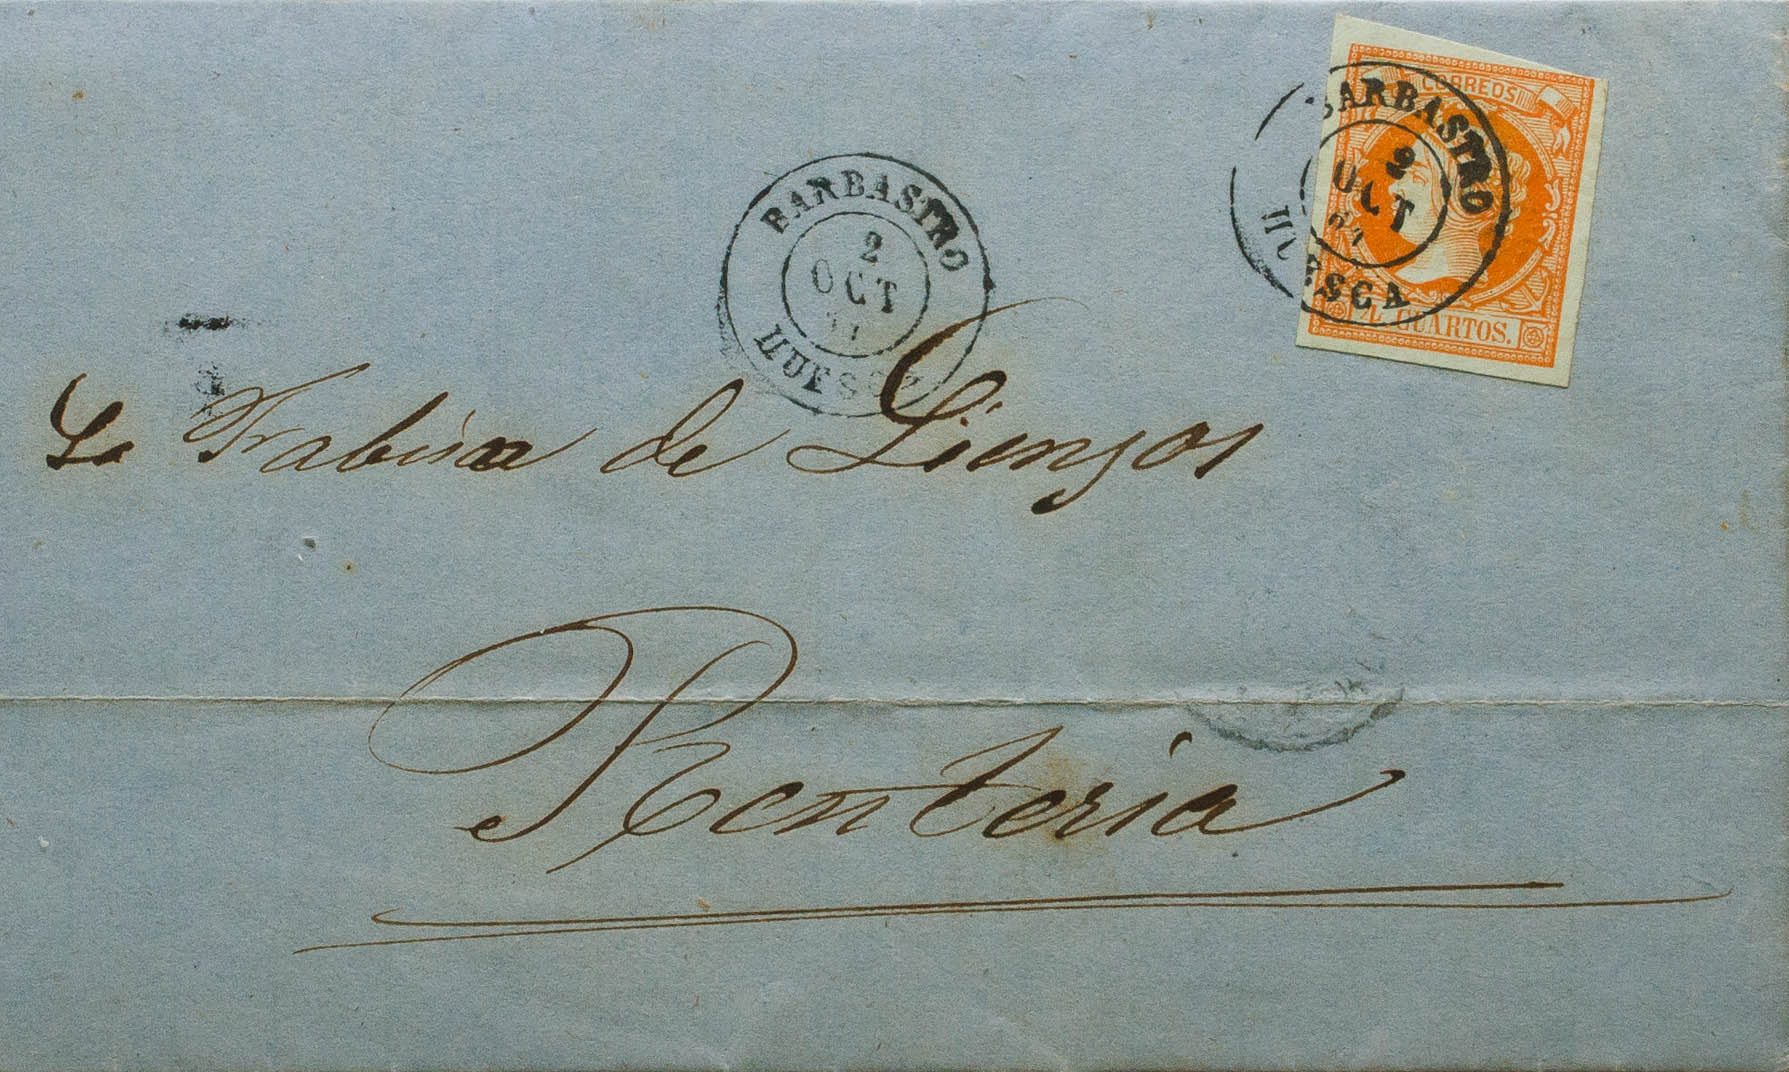 CORREOS
BARBASTRO
2
OCT
HUESCA
CUARTOS.
BARBASTRO
2
OCT
HUESCA
La Frabica de Lienzos
Renteria